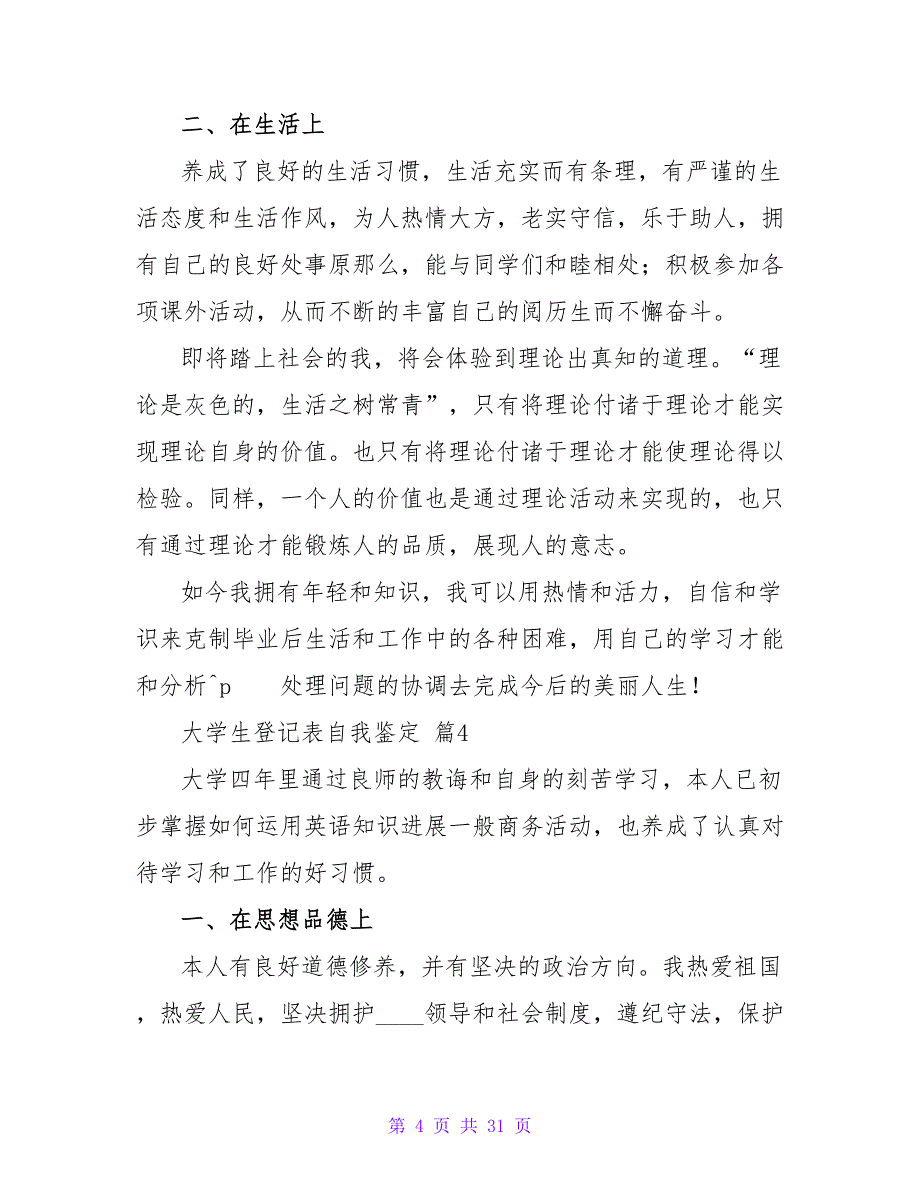 二、在生活上
养成了良好的生活习惯，生活充实而有条理，有严谨的生
活态度和生活作风，为人热情大方，老实守信，乐于助人，拥
有自己的良好处事原那么，能与同学们和睦相处；积极参加各
项课外活动，从而不断的丰富自己的阅历生而不懈奋斗。
即将踏上社会的我，将会体验到理论出真知的道理。“理
论是灰色的，生活之树常青”，只有将理论付诸于理论才能实
现理论自身的价值。也只有将理论付诸于理论才能使理论得以
检验。同样，一个人的价值也是通过理论活动来实现的，也只
有通过理论才能锻炼人的品质，展现人的意志。
如今我拥有年轻和知识，我可以用热情和活力，自信和学
识来克制毕业后生活和工作中的各种困难，用自己的学习才能
和分析^p　　处理问题的协调去完成今后的美丽人生！
大学生登记表自我鉴定 篇4
大学四年里通过良师的教诲和自身的刻苦学习，本人已初
步掌握如何运用英语知识进展一般商务活动，也养成了认真对
待学习和工作的好习惯。
一、在思想品德上
本人有良好道德修养，并有坚决的政治方向。我热爱祖国
，热爱人民，坚决拥护____领导和社会制度，遵纪守法，保护
第 4 页 共 31 页